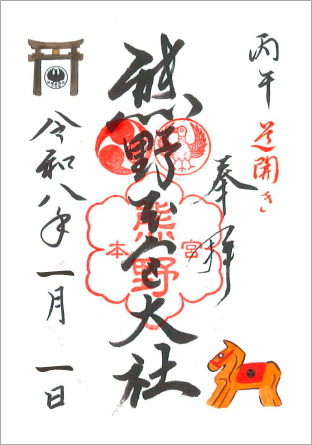 丙午 道開き
奉拝
熊野本宮大社
熊野
本宮
令和八年 一月 一日